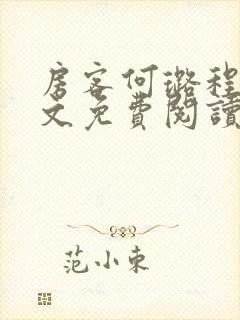 房客何璐程
文免費閱讀
范小東